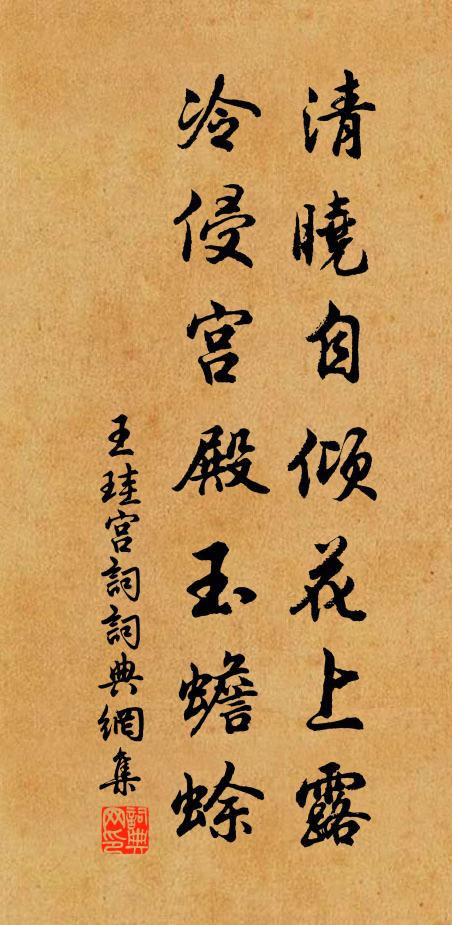 清曉自傾花上露
冷侵宮殿玉蟾蜍
王珪宮詞詞典網集
詞典網印